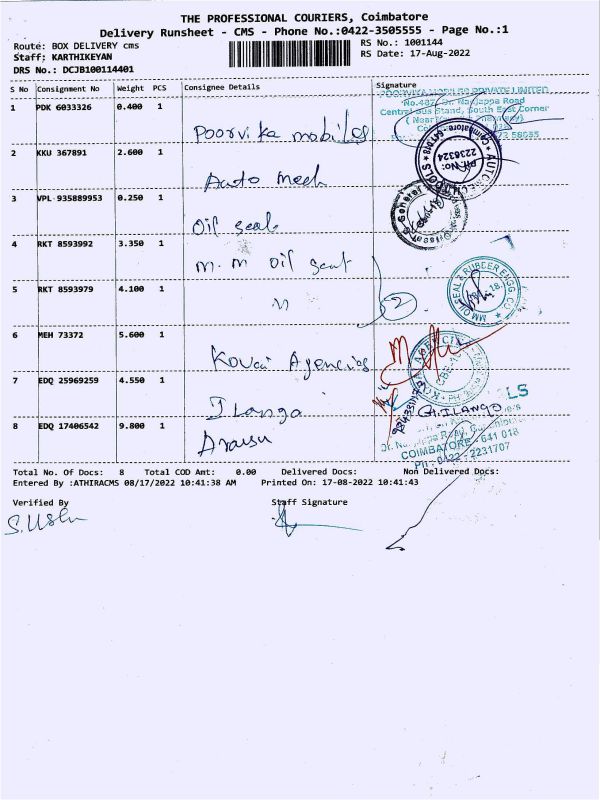 THE PROFESSIONAL COURIERS, Coimbatore
Delivery Runsheet - CMS - Phone No.:0422-3505555 - Page No.:1
Route: BOX DELIVERY cms
RS No.: 1001144
Staff: KARTHIKEYAN
RS Date: 17-Aug-2022
DRS No.: DCJB100114401
S No Consignment No Weight PCS Consignee Details Signature
1 PDK 6033326 0.400 1 Poorvika mobiles
POORVIKA MOBILES PRIVATE LIMITED
Central Bus Stand, South East Corner
2 KKU 367891 2.600 1 Auto Mech
PH. No: 2236324
Coimbatore - 641 018
3 VPL 935889953 0.250 1 Oil seals
4 RKT 8593992 3.350 1 M. M oil seal
5 RKT 8593979 4.100 1 "
2
MM OIL SEAL & RUBBER ENGG. CO
6 MEH 73372 5.600 1 Kovai Agencies
7 EDQ 25969259 4.550 1 Ilanga
G. ILANGO
8 EDQ 17406542 9.800 1 Arausu
COIMBATORE - 641 018
PH : 0422 - 2231707
Total No. Of Docs: 8 Total COD Amt: 0.00 Delivered Docs: Non Delivered Docs:
Entered By :ATHIRACMS 08/17/2022 10:41:38 AM Printed On: 17-08-2022 10:41:43
Verified By Staff Signature
S. Usha